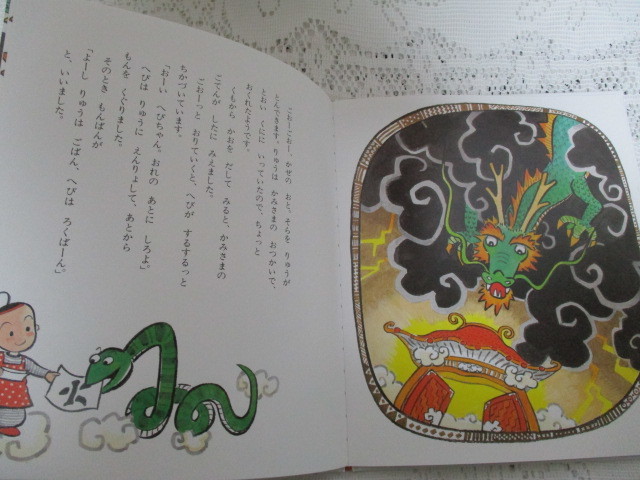 ごおーごおー、かぜの おと、そらを りゅうが
とんできます。りゅうは かみさまの おつかいで、
とおい くにに いっていたので、ちょっと
おくれたようです。
くもから かおを だして みると、かみさまの
ごてんが したに みえました。
ごおーっと おりていくと、へびが するするっと
ちかづいています。
「おーい へびちゃん、おれの あとに しろよ」
へびは りゅうに えんりょして、あとから
もんを くぐりました。
そのとき もんばんが
「よーし りゅうは ごばん、へびは ろくばーん」
と、いいました。